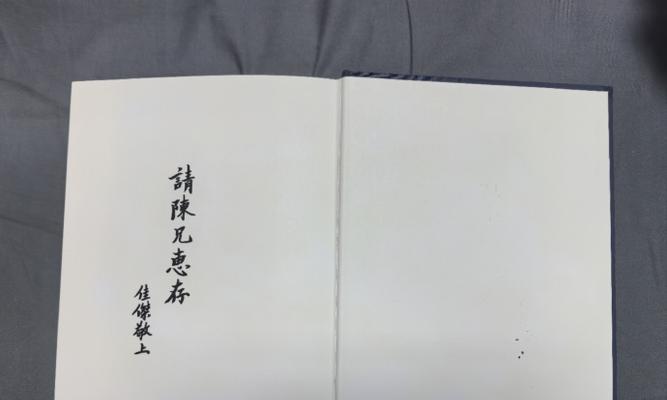 請陳兄惠存
佳傑敬上